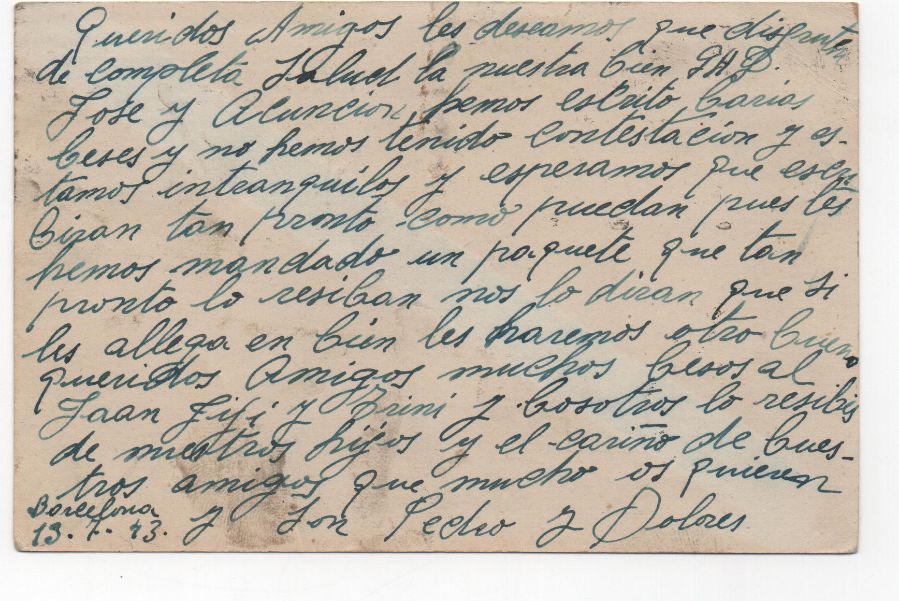 Queridos Amigos les deseamos que disfruten
de completa Salud la nuestra bien G.A.D.
Jose y Acuncion hemos escrito barias
beses y no hemos tenido contestacion y es-
tamos intranquilos y esperamos que escri
biran tan pronto como puedan pues les
hemos mandado un paquete que tan
pronto lo resiban nos lo diran que si
les allega en bien les haremos otro bueno
queridos Amigos muchos besos al
Juan Fifi y Trini y bosotros lo resibis
de nuestros hijos y el cariño de bues-
tros amigos que mucho os quieren
y son Pedro y Dolores
Barcelona
13.7-43.